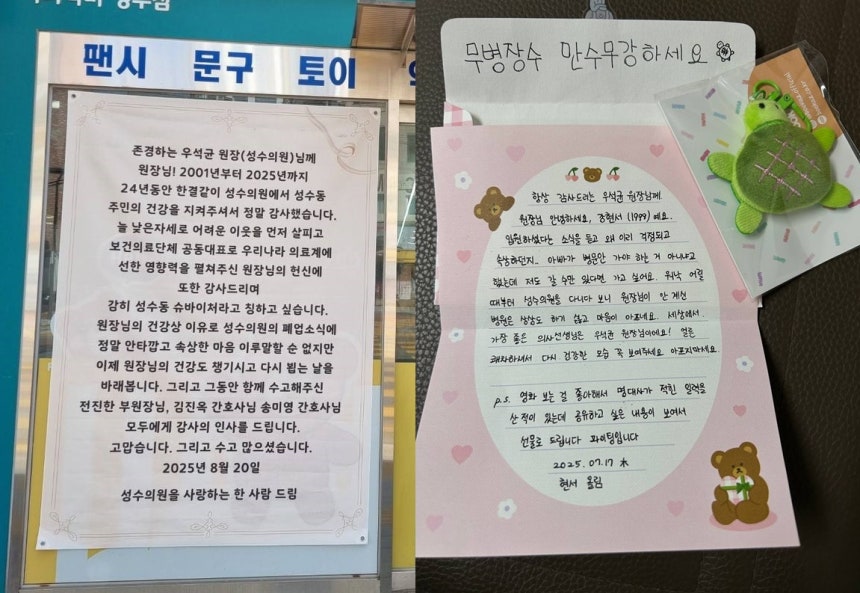 팬시 문구 토이
존경하는 우석균 원장(성수의원)님께
원장님! 2001년부터 2025년까지
24년동안 한결같이 성수의원에서 성수동
주민의 건강을 지켜주셔서 정말 감사했습니다.
늘 낮은자세로 어려운 이웃을 먼저 살피고
보건의료단체 공동대표로 우리나라 의료계에
선한 영향력을 펼쳐주신 원장님의 헌신에
또한 감사드리며
감히 성수동 슈바이처라고 칭하고 싶습니다.
원장님의 건강상 이유로 성수의원의 폐업소식에
정말 안타깝고 속상한 마음 이루말할 순 없지만
이제 원장님의 건강도 챙기시고 다시 뵙는 날을
바래봅니다. 그리고 그동안 함께 수고해주신
전진한 부원장님, 김진옥 간호사님 송미영 간호사님
모두에게 감사의 인사를 드립니다.
고맙습니다. 그리고 수고 많으셨습니다.
2025년 8월 20일
성수의원을 사랑하는 한 사람 드림
무병장수 만수무강하세요
항상 감사드리는 우석균 원장님께.
원장님 안녕하세요, 강현서 (1999) 예요.
입원하셨다는 소식을 듣고 왜 이리 걱정되고
속상하던지.. 아빠가 병문안 가야 하는 거 아니냐고
했는데 저도 갈 수만 있다면 가고 싶어요. 워낙 어릴
때부터 성수의원을 다니다 보니 원장님이 안 계신
병원은 상상도 하기 싫고 마음이 아프네요. 세상에서
가장 좋은 의사선생님은 우석균 원장님이에요! 얼른
쾌차하셔서 다시 건강한 모습 꼭 보여주세요 아프지마세요.
p.s. 영화 보는 걸 좋아해서 명대사가 적힌 일력을
산 적이 있는데 공유하고 싶은 내용이 보여서
선물로 드립니다 파이팅입니다
2025.07.17 木
현서 올림